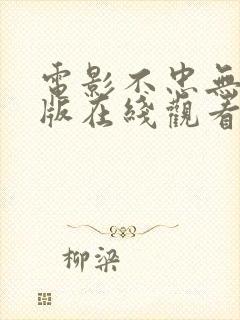 電影不忠無
版在綫觀看
柳梁